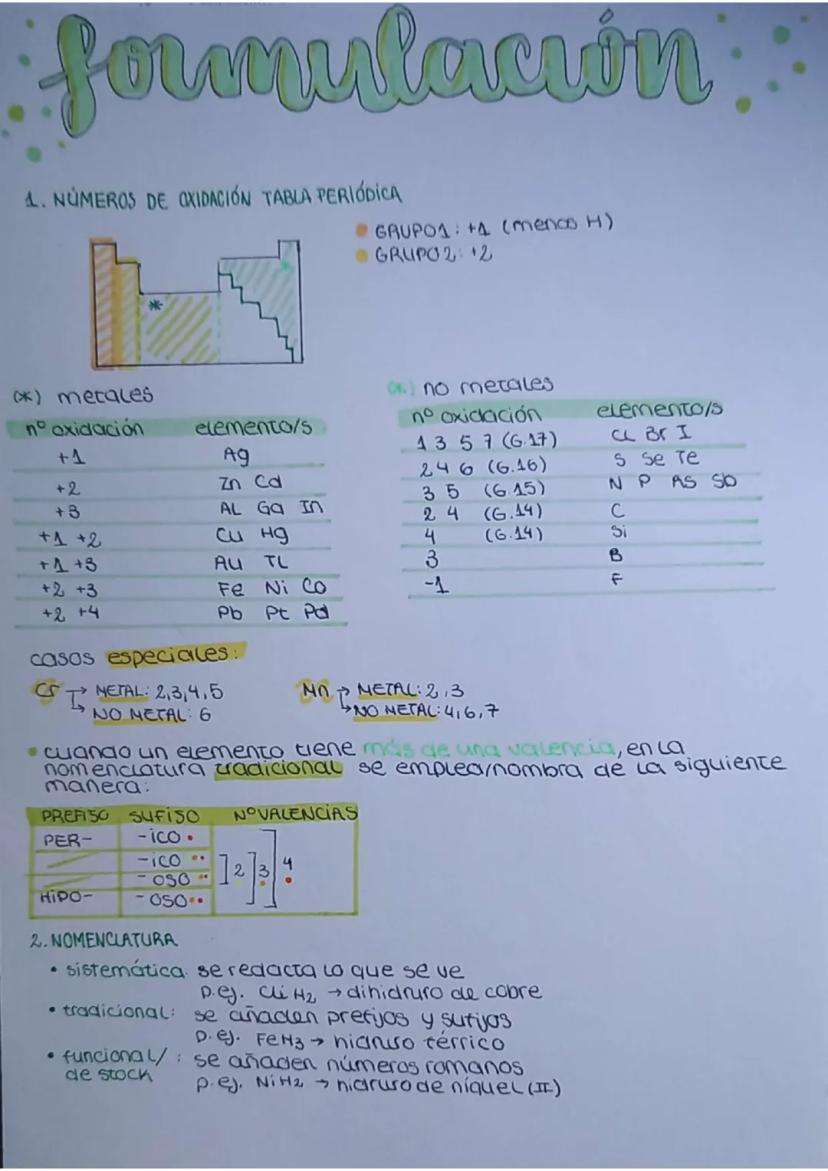 formulación
1. NÚMEROS DE OXIDACIÓN TABLA PERIÓDICA
GRUPO1: +1 (menos H)
GRUPO2: +2
*
*
(*) metales
nº oxidación elemento/s
+1 Ag
+2 Zn Cd
+3 AL Ga In
+1 +2 Cu Hg
+1 +3 Au TL
+2 +3 Fe Ni Co
+2 +4 Pb Pt Pd
(*) no metales
nº oxidación elemento/s
1 3 5 7 (G.17) CL Br I
2 4 6 (G.16) S Se Te
3 5 (G.15) N P AS Sb
2 4 (G.14) C
4 (G.14) Si
3 B
-1 F
casos especiales:
Cr → METAL: 2,3,4,5
↳ NO METAL: 6
Mn → METAL: 2,3
↳ NO METAL: 4,6,7
• cuando un elemento tiene más de una valencia, en la
nomenclatura tradicional se emplea/nombra de la siguiente
manera:
PREFIJO SUFIJO Nº VALENCIAS
PER- -ICO
-ICO
-OSO
HIPO- -OSO
2 3 4
2. NOMENCLATURA
• sistemática: se redacta lo que se ve
p.ej. CuH2 → dihidruro de cobre
• tradicional: se añaden prefijos y sufijos
p.ej. FeH3 → hidruro férrico
• funcional/ : se añaden números romanos
de stock
p.ej. NiH2 → hidruro de níquel (II)